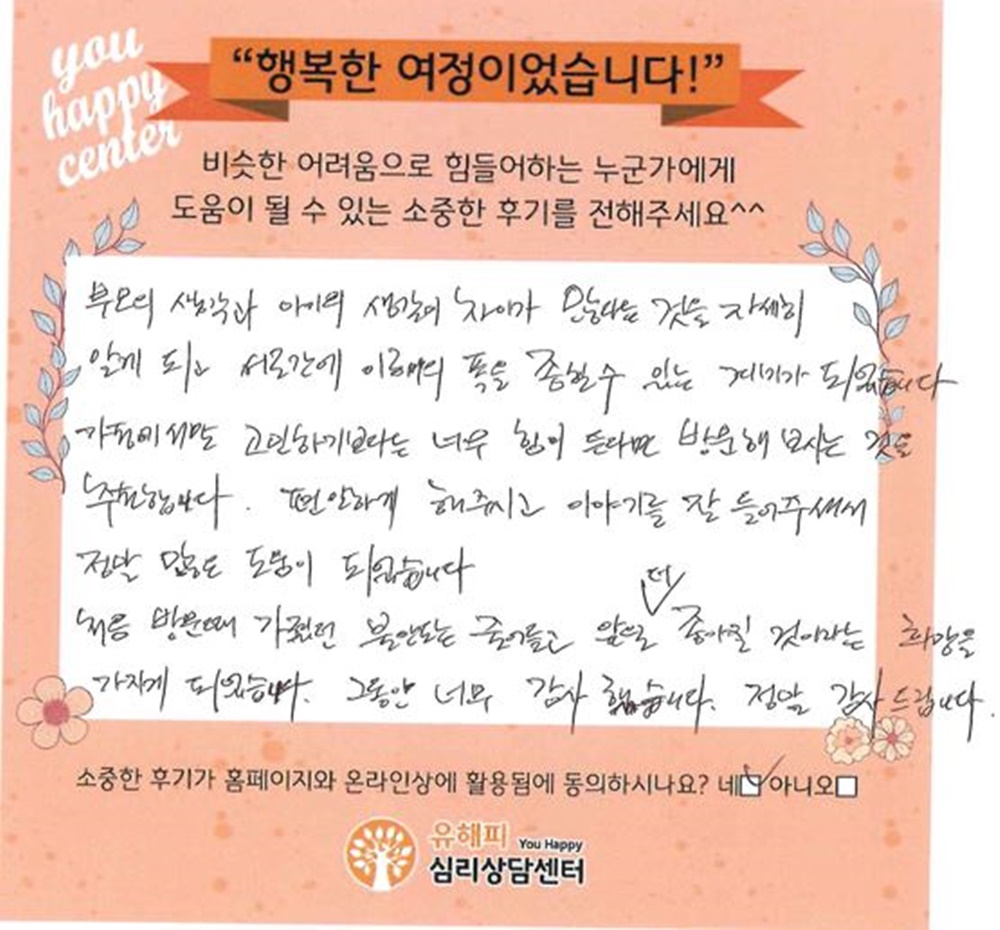 you
happy
center
“행복한 여정이었습니다!”
비슷한 어려움으로 힘들어하는 누군가에게
도움이 될 수 있는 소중한 후기를 전해주세요^^
부모의 생각과 아이의 생각의 차이가 많다는 것을 자세히
알게 되고 서로간에 이해의 폭을 좁힐수 있는 계기가 되었습니다
가정에서만 고민하기보다는 너무 힘이 든다면 방문해 보시는 것을
추천합니다. 편안하게 해주시고 이야기를 잘 들어주셔서
정말 많은 도움이 되었습니다
더
처음 방문때 가졌던 불안도는 줄어들고 앞으로 좋아질 것이라는 희망을
가지게 되었습니다. 그동안 너무 감사 했습니다. 정말 감사드립니다.
소중한 후기가 홈페이지와 온라인상에 활용됨에 동의하시나요? 네☑ 아니오□
유해피 You Happy
심리상담센터